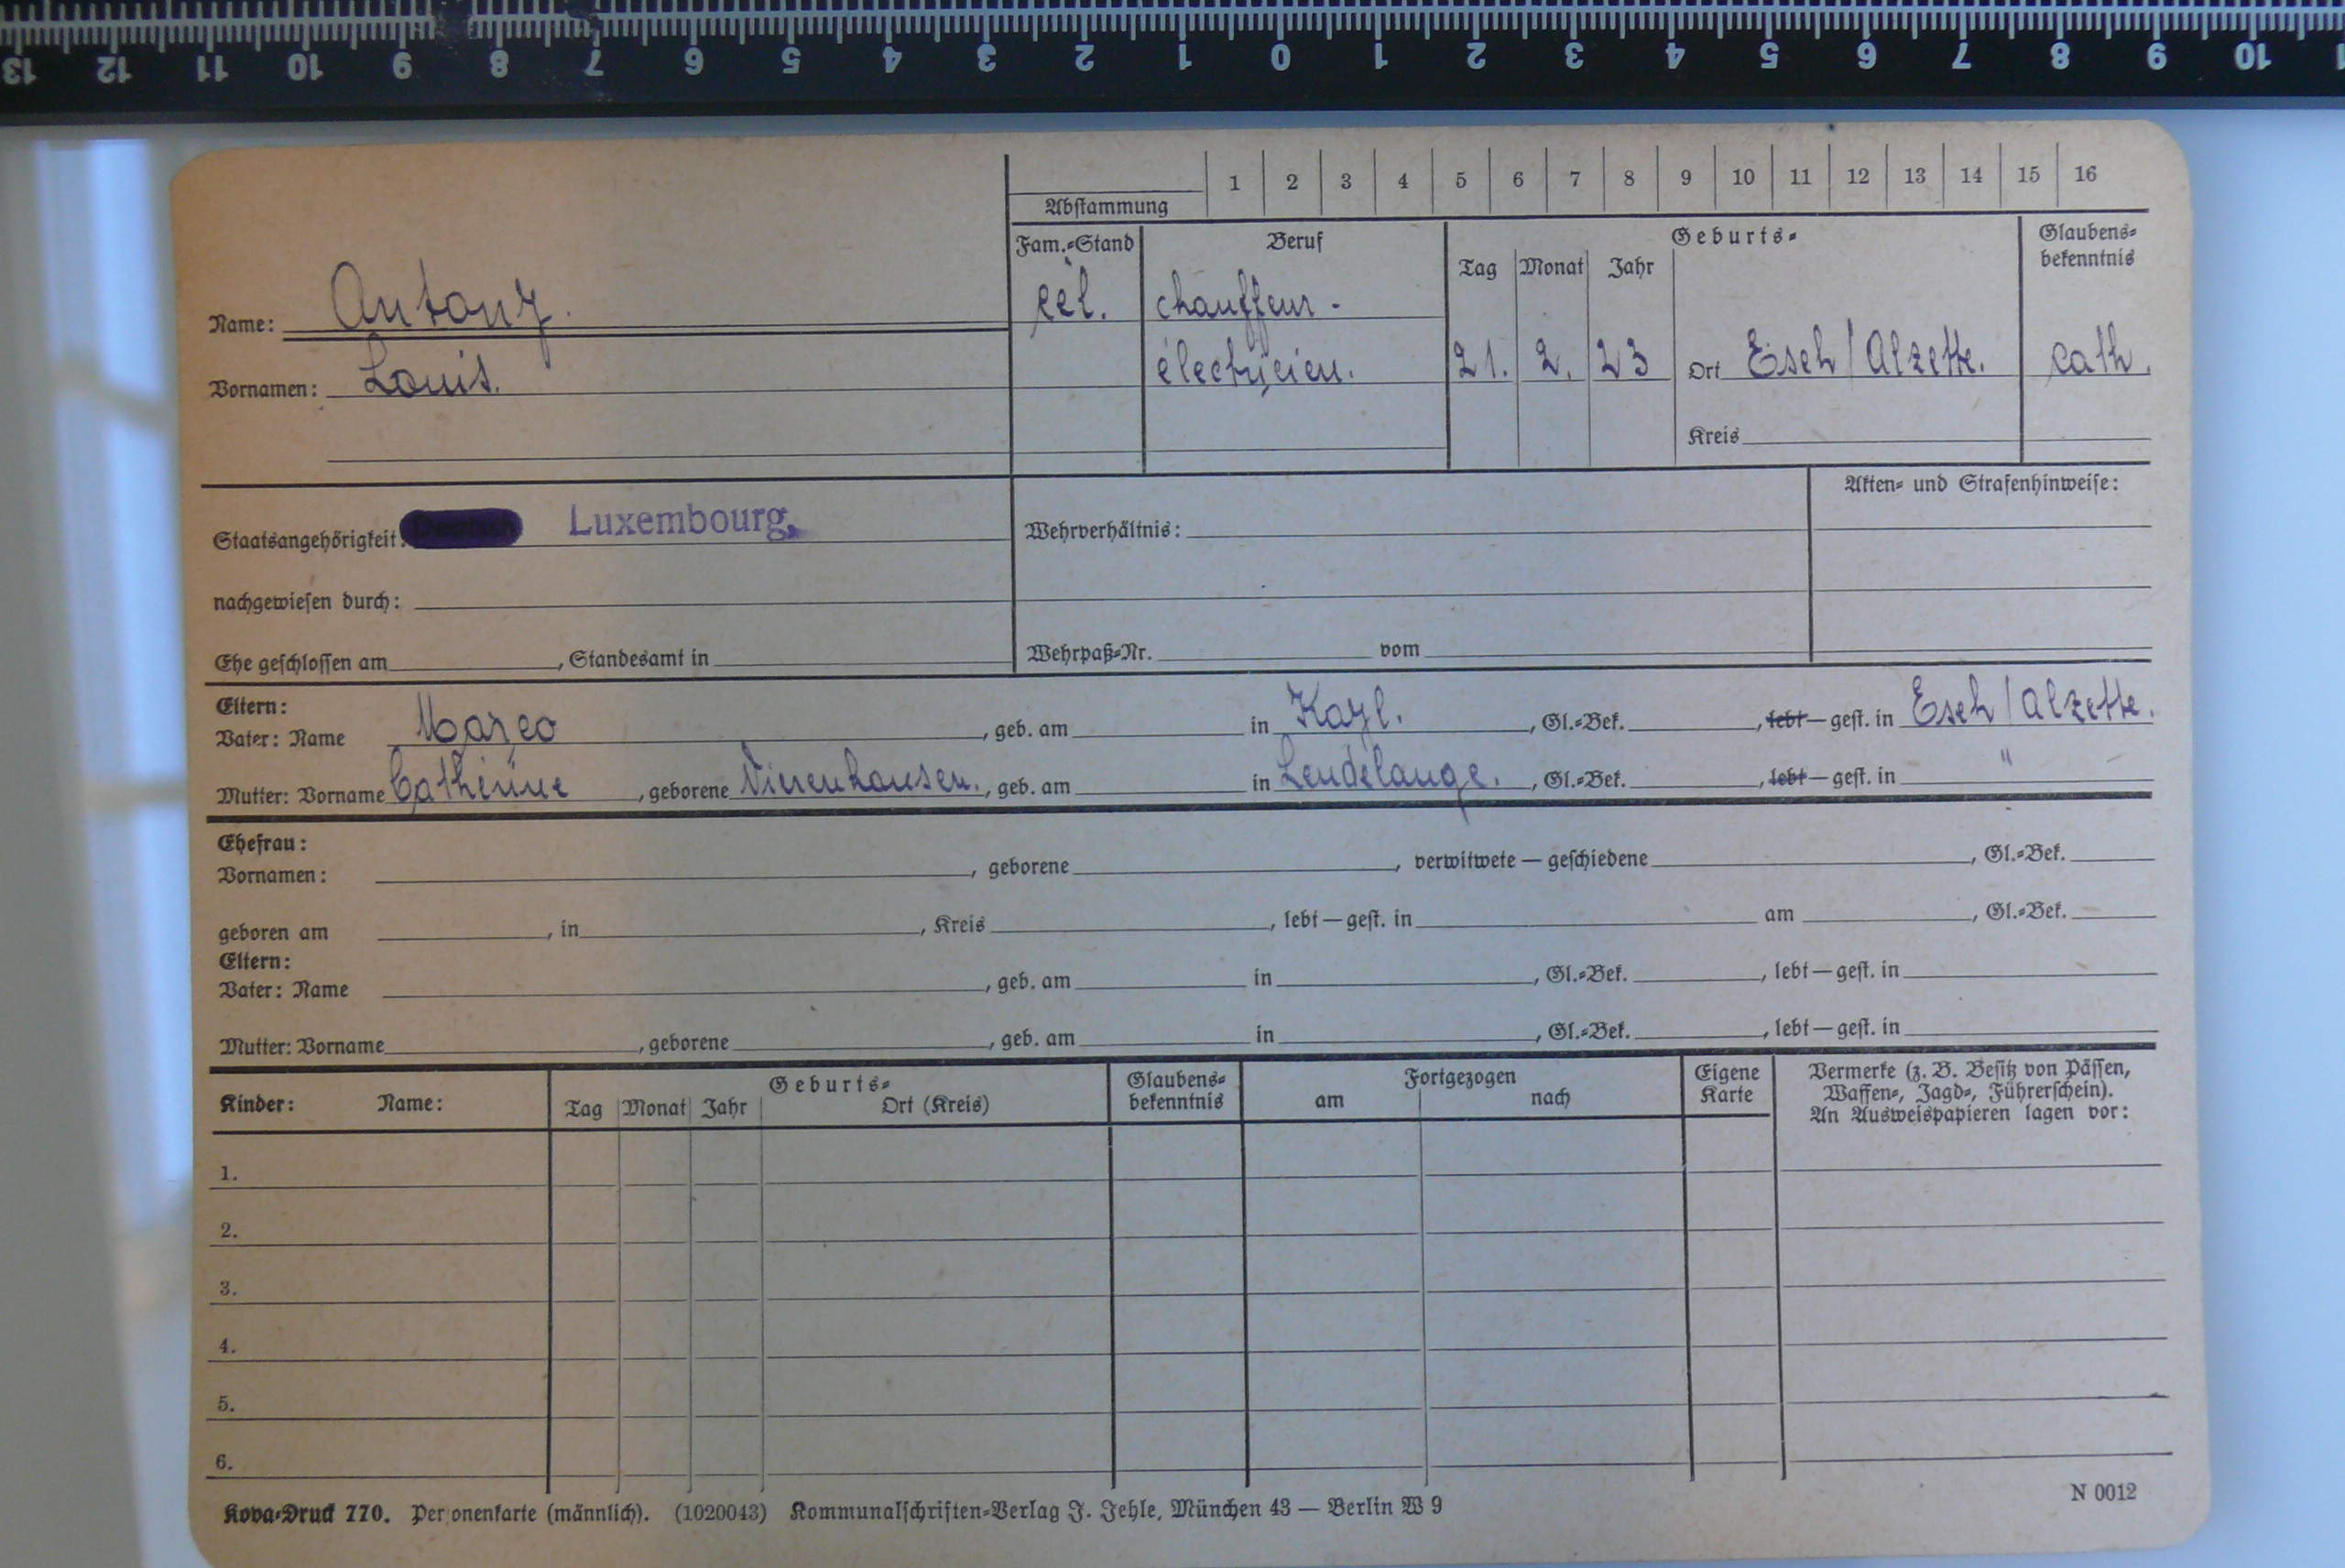 13 12 11 10 9 8 7 6 5 4 3 2 1 0 1 2 3 4 5 6 7 8 9 10
1 2 3 4 5 6 7 8 9 10 11 12 13 14 15 16
Abstammung
Fam.-Stand Beruf Geburts- Glaubens-
Tag Monat Jahr bekenntnis
Name: Antony. cél. chauffeur -
Vornamen: Louis. électricien. 21. 2. 23 Ort Esch / Alzette. cath.
Kreis
Akten- und Strafenhinweise:
Staatsangehörigkeit: Deutsch Luxembourg, Wehrverhältnis:
nachgewiesen durch:
Ehe geschlossen am , Standesamt in Wehrpaß-Nr. vom
Eltern:
Vater: Name , geb. am in Kayl. , Gl.-Bek. , lebt — gest. in Esch / Alzette.
Mutter: Vorname Catherine , geborene , geb. am in Leudelange. , Gl.-Bek. , lebt — gest. in "
Ehefrau:
Vornamen: , geborene , verwitwete — geschiedene , Gl.-Bek.
geboren am , in , Kreis , lebt — gest. in am , Gl.-Bek.
Eltern:
Vater: Name , geb. am in , Gl.-Bek. , lebt — gest. in
Mutter: Vorname , geborene , geb. am in , Gl.-Bek. , lebt — gest. in
Kinder: Name: Geburts- Glaubens- Fortgezogen Eigene Vermerke (z. B. Besitz von Pässen,
Tag Monat Jahr Ort (Kreis) bekenntnis am nach Karte Waffen-, Jagd-, Führerschein).
An Ausweispapieren lagen vor:
1.
2.
3.
4.
5.
6.
N 0012
Kova-Druck 770. Personenkarte (männlich). (1020043) Kommunalschriften-Verlag J. Jehle, München 43 — Berlin W 9